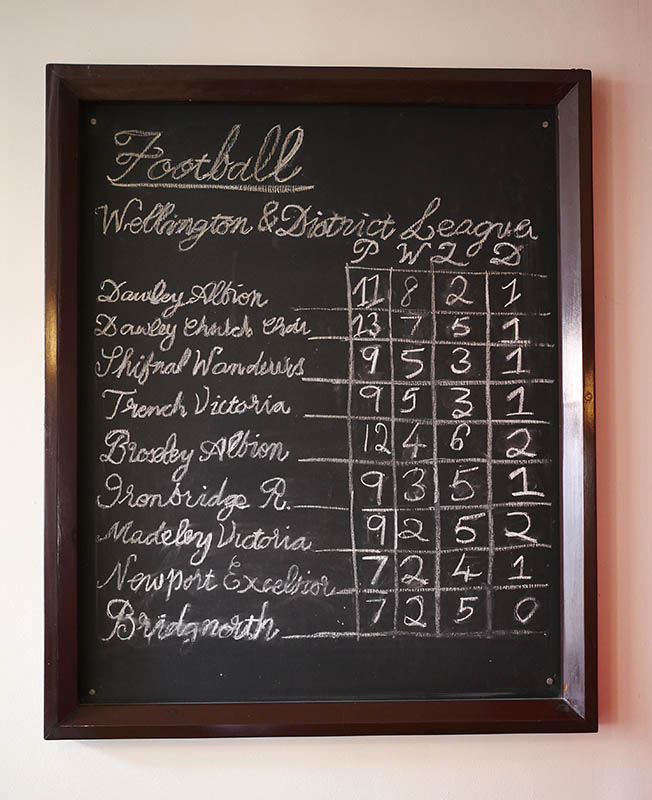 Football
Wellington & District League
P W L D
Dawley Albion 11 8 2 1
Dawley Church Choir 13 7 5 1
Shifnal Wanderers 9 5 3 1
Trench Victoria 9 5 3 1
Broseley Albion 12 4 6 2
Ironbridge R. 9 3 5 1
Madeley Victoria 9 2 5 2
Newport Excelsior 7 2 4 1
Bridgnorth 7 2 5 0